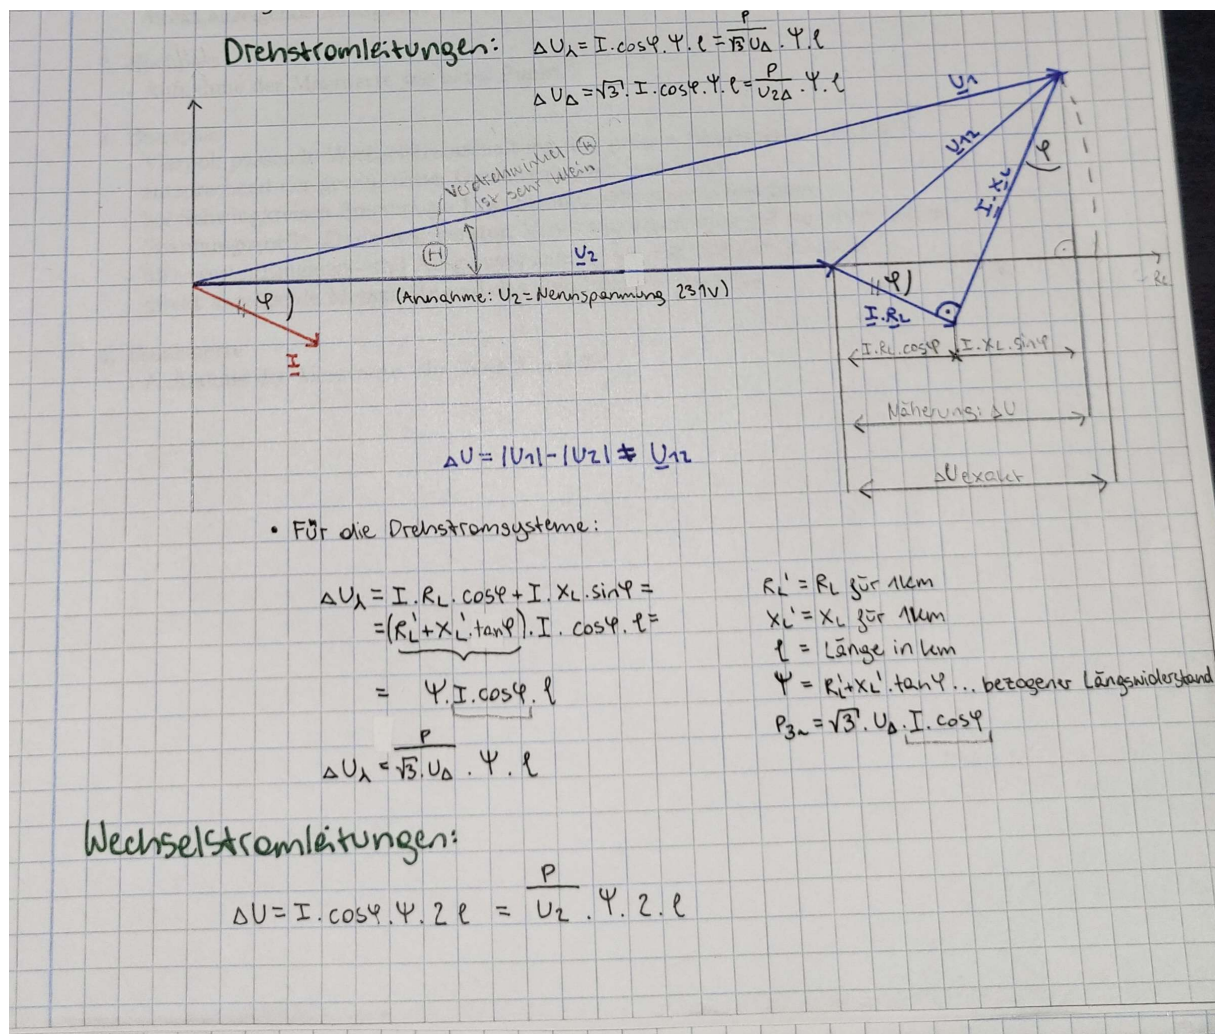 Drehstromleitungen: ΔU⅄ = I·cosφ·Ψ·ℓ = P/(√3 U∆)·Ψ·ℓ
ΔU∆ = √3·I·cosφ·Ψ·ℓ = P/U2∆·Ψ·ℓ
U1
U12
φ
I·XL
Verdrehwinkel Ⓗ
ist sehr klein
Ⓗ
U2
(Annahme: U2 = Nennspannung 231V)
φ
φ
I
I·RL
I·RL·cosφ I·XL·sinφ
Näherung: ΔU
ΔU exakt
ΔU = |U1| - |U2| ≠ U12
• Für die Drehstromsysteme:
ΔU⅄ = I·RL·cosφ + I·XL·sinφ =
= (RL' + XL'·tanφ)·I·cosφ·ℓ =
= Ψ·I·cosφ·ℓ
ΔU⅄ = P/(√3·U∆)·Ψ·ℓ
RL' = RL für 1km
XL' = XL für 1km
ℓ = Länge in km
Ψ = RL' + XL'·tanφ... bezogener Längswiderstand
P3~ = √3·U∆·I·cosφ
Wechselstromleitungen:
ΔU = I·cosφ·Ψ·2ℓ = P/U2·Ψ·2·ℓ